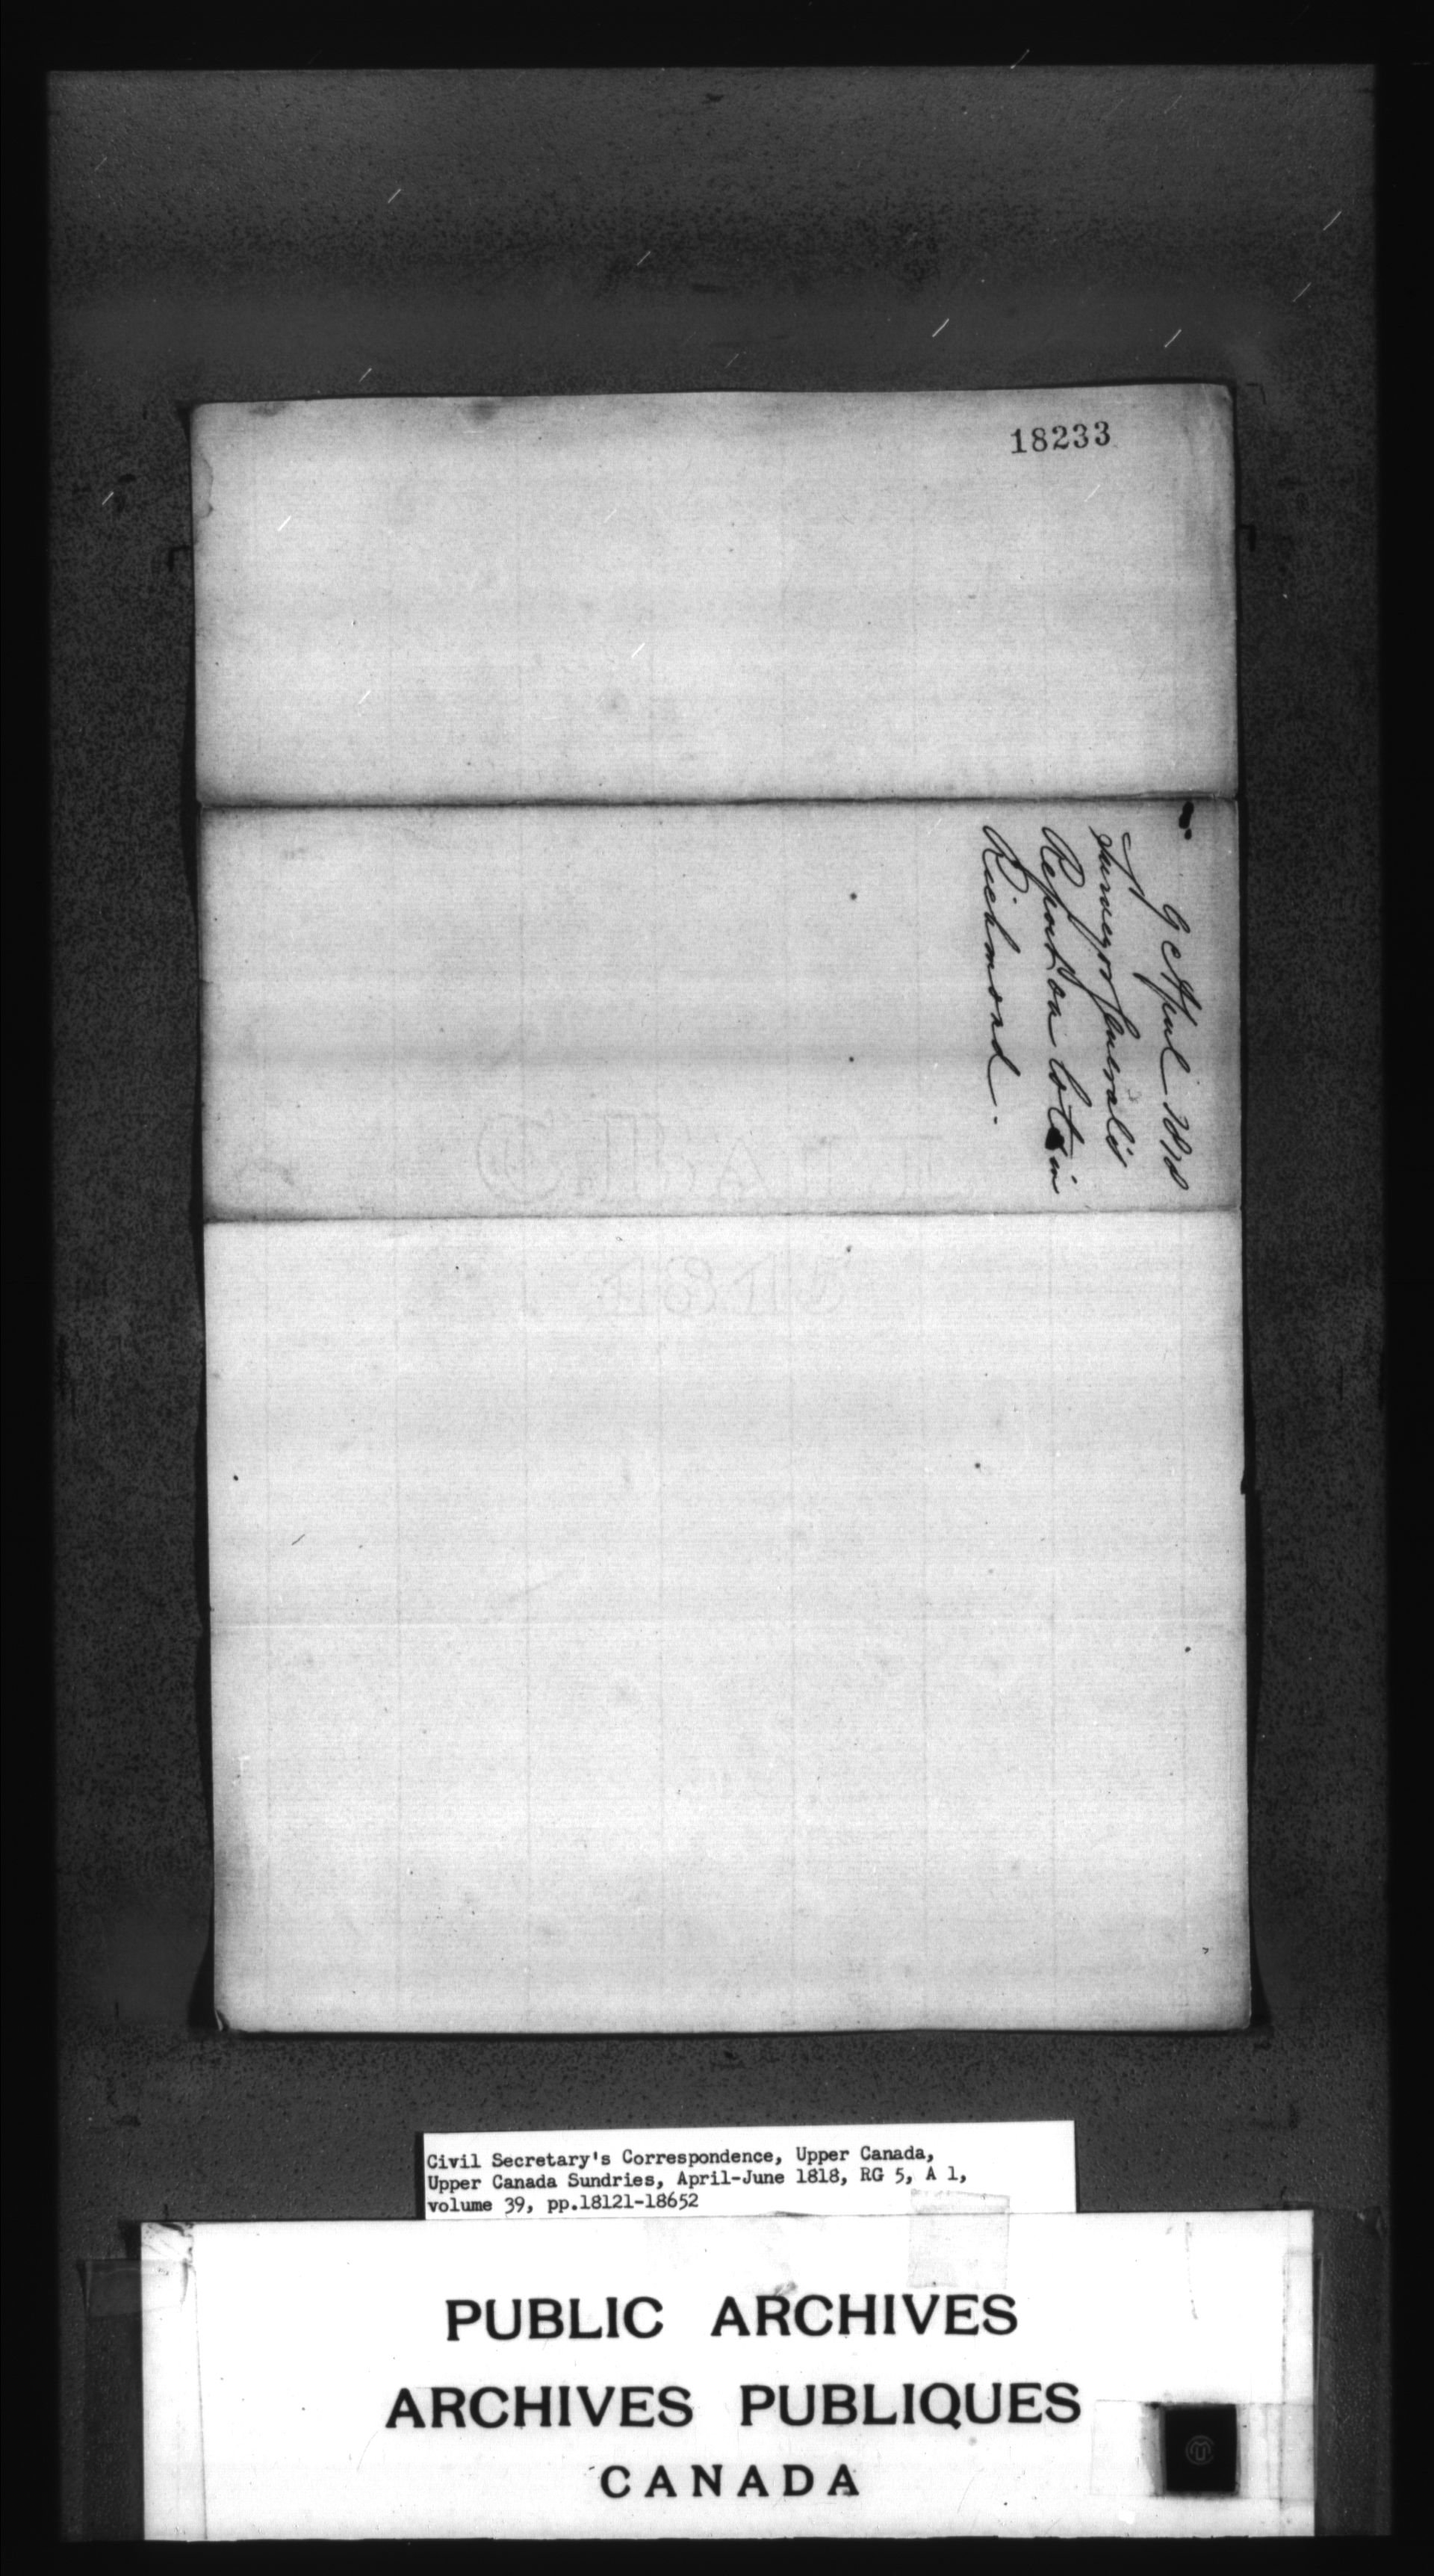 18233
9 April 1818
Surveyor General's
Report on Lots in
Richmond.
1815
Civil Secretary's Correspondence, Upper Canada,
Upper Canada Sundries, April-June 1818, RG 5, A 1,
volume 39, pp.18121-18652
PUBLIC ARCHIVES
ARCHIVES PUBLIQUES
CANADA